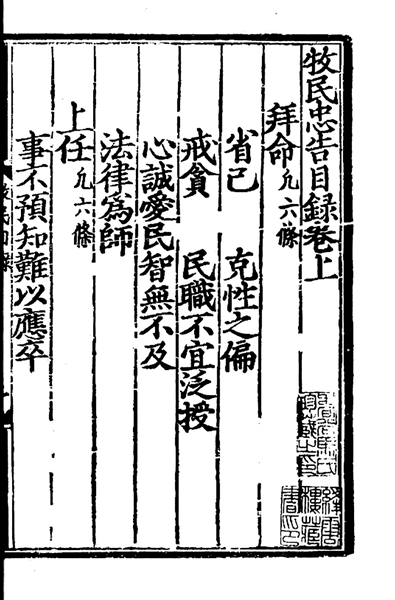 牧民忠告目録卷上
拜命凡六條
省己 克性之偏
戒貪 民職不宜泛授
心誠愛民智無不及
法律爲師
上任凡六條
事不預知難以應卒